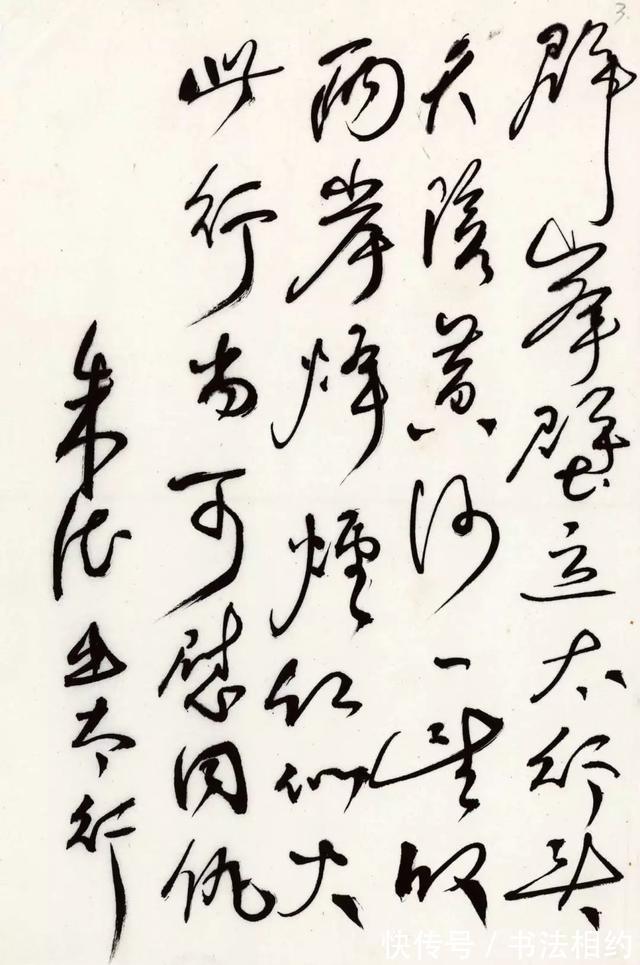 3.
群峯壁立太行头
天险黄河一望收
两岸烽煙红似火
此行当可慰同仇
朱德出太行
快传号 / 书法相约